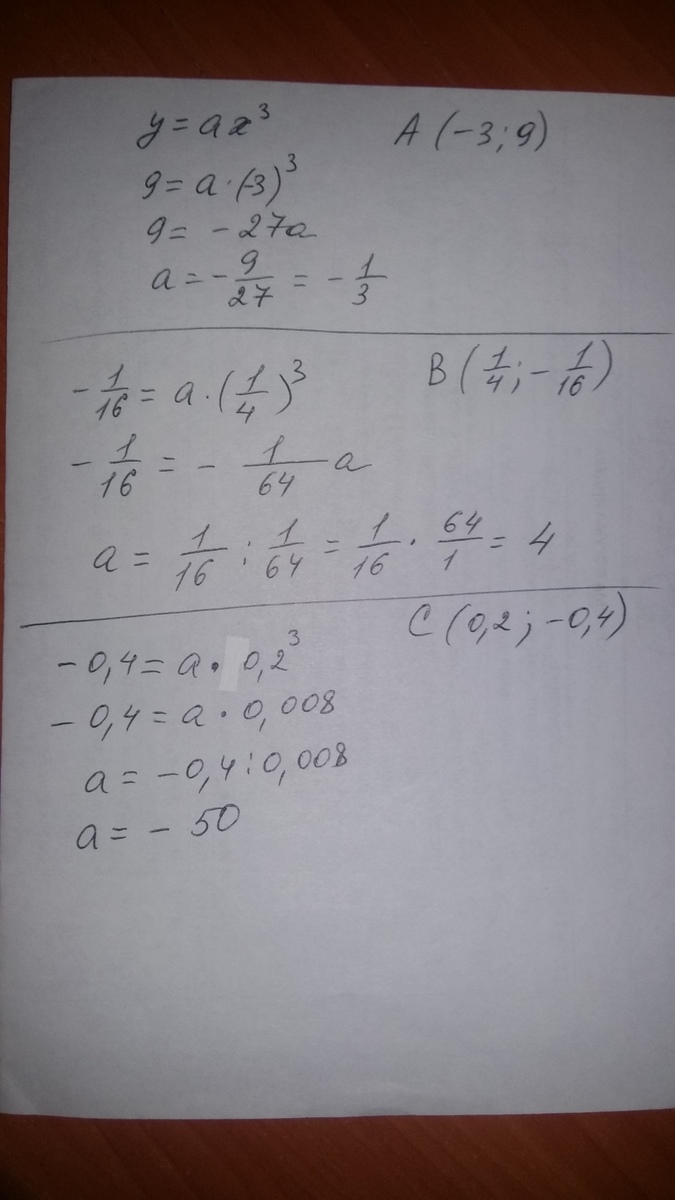 y = ax³ A (-3; 9)
9 = a · (-3)³
9 = - 27a
a = - 9/27 = - 1/3
- 1/16 = a · (1/4)³ B (1/4; - 1/16)
- 1/16 = - 1/64 a
a = 1/16 : 1/64 = 1/16 · 64/1 = 4
- 0,4 = a · 0,2³ C (0,2; -0,4)
- 0,4 = a · 0,008
a = -0,4 : 0,008
a = - 50